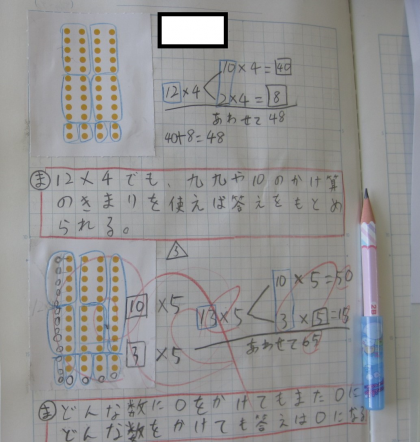 10×4=40
12×4
2×4=8
あわせて48
40+8=48
ま 12×4でも、九九や10のかけ算
のきまりを使えば答えをもとめ
られる。
3
10 ×5
3 ×5
13×5
10×5=50
3×5=15
あわせて65
ま どんな数に0をかけてもまた0に
どんな数をかけても答えは0にな